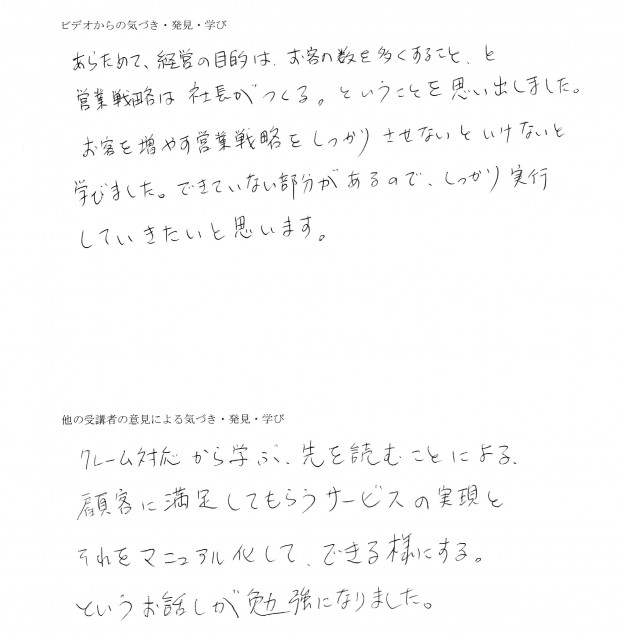 ビデオからの気づき・発見・学び
あらためて、経営の目的は、お客の数を多くすること、と
営業戦略は社長がつくる。ということを思い出しました。
お客を増やす営業戦略をしっかりさせないといけないと
学びました。できていない部分があるので、しっかり実行
していきたいと思います。
他の受講者の意見による気づき・発見・学び
クレーム対応から学ぶ、先を読むことによる、
顧客に満足してもらうサービスの実現と
それをマニュアル化して、できる様にする。
というお話しが勉強になりました。